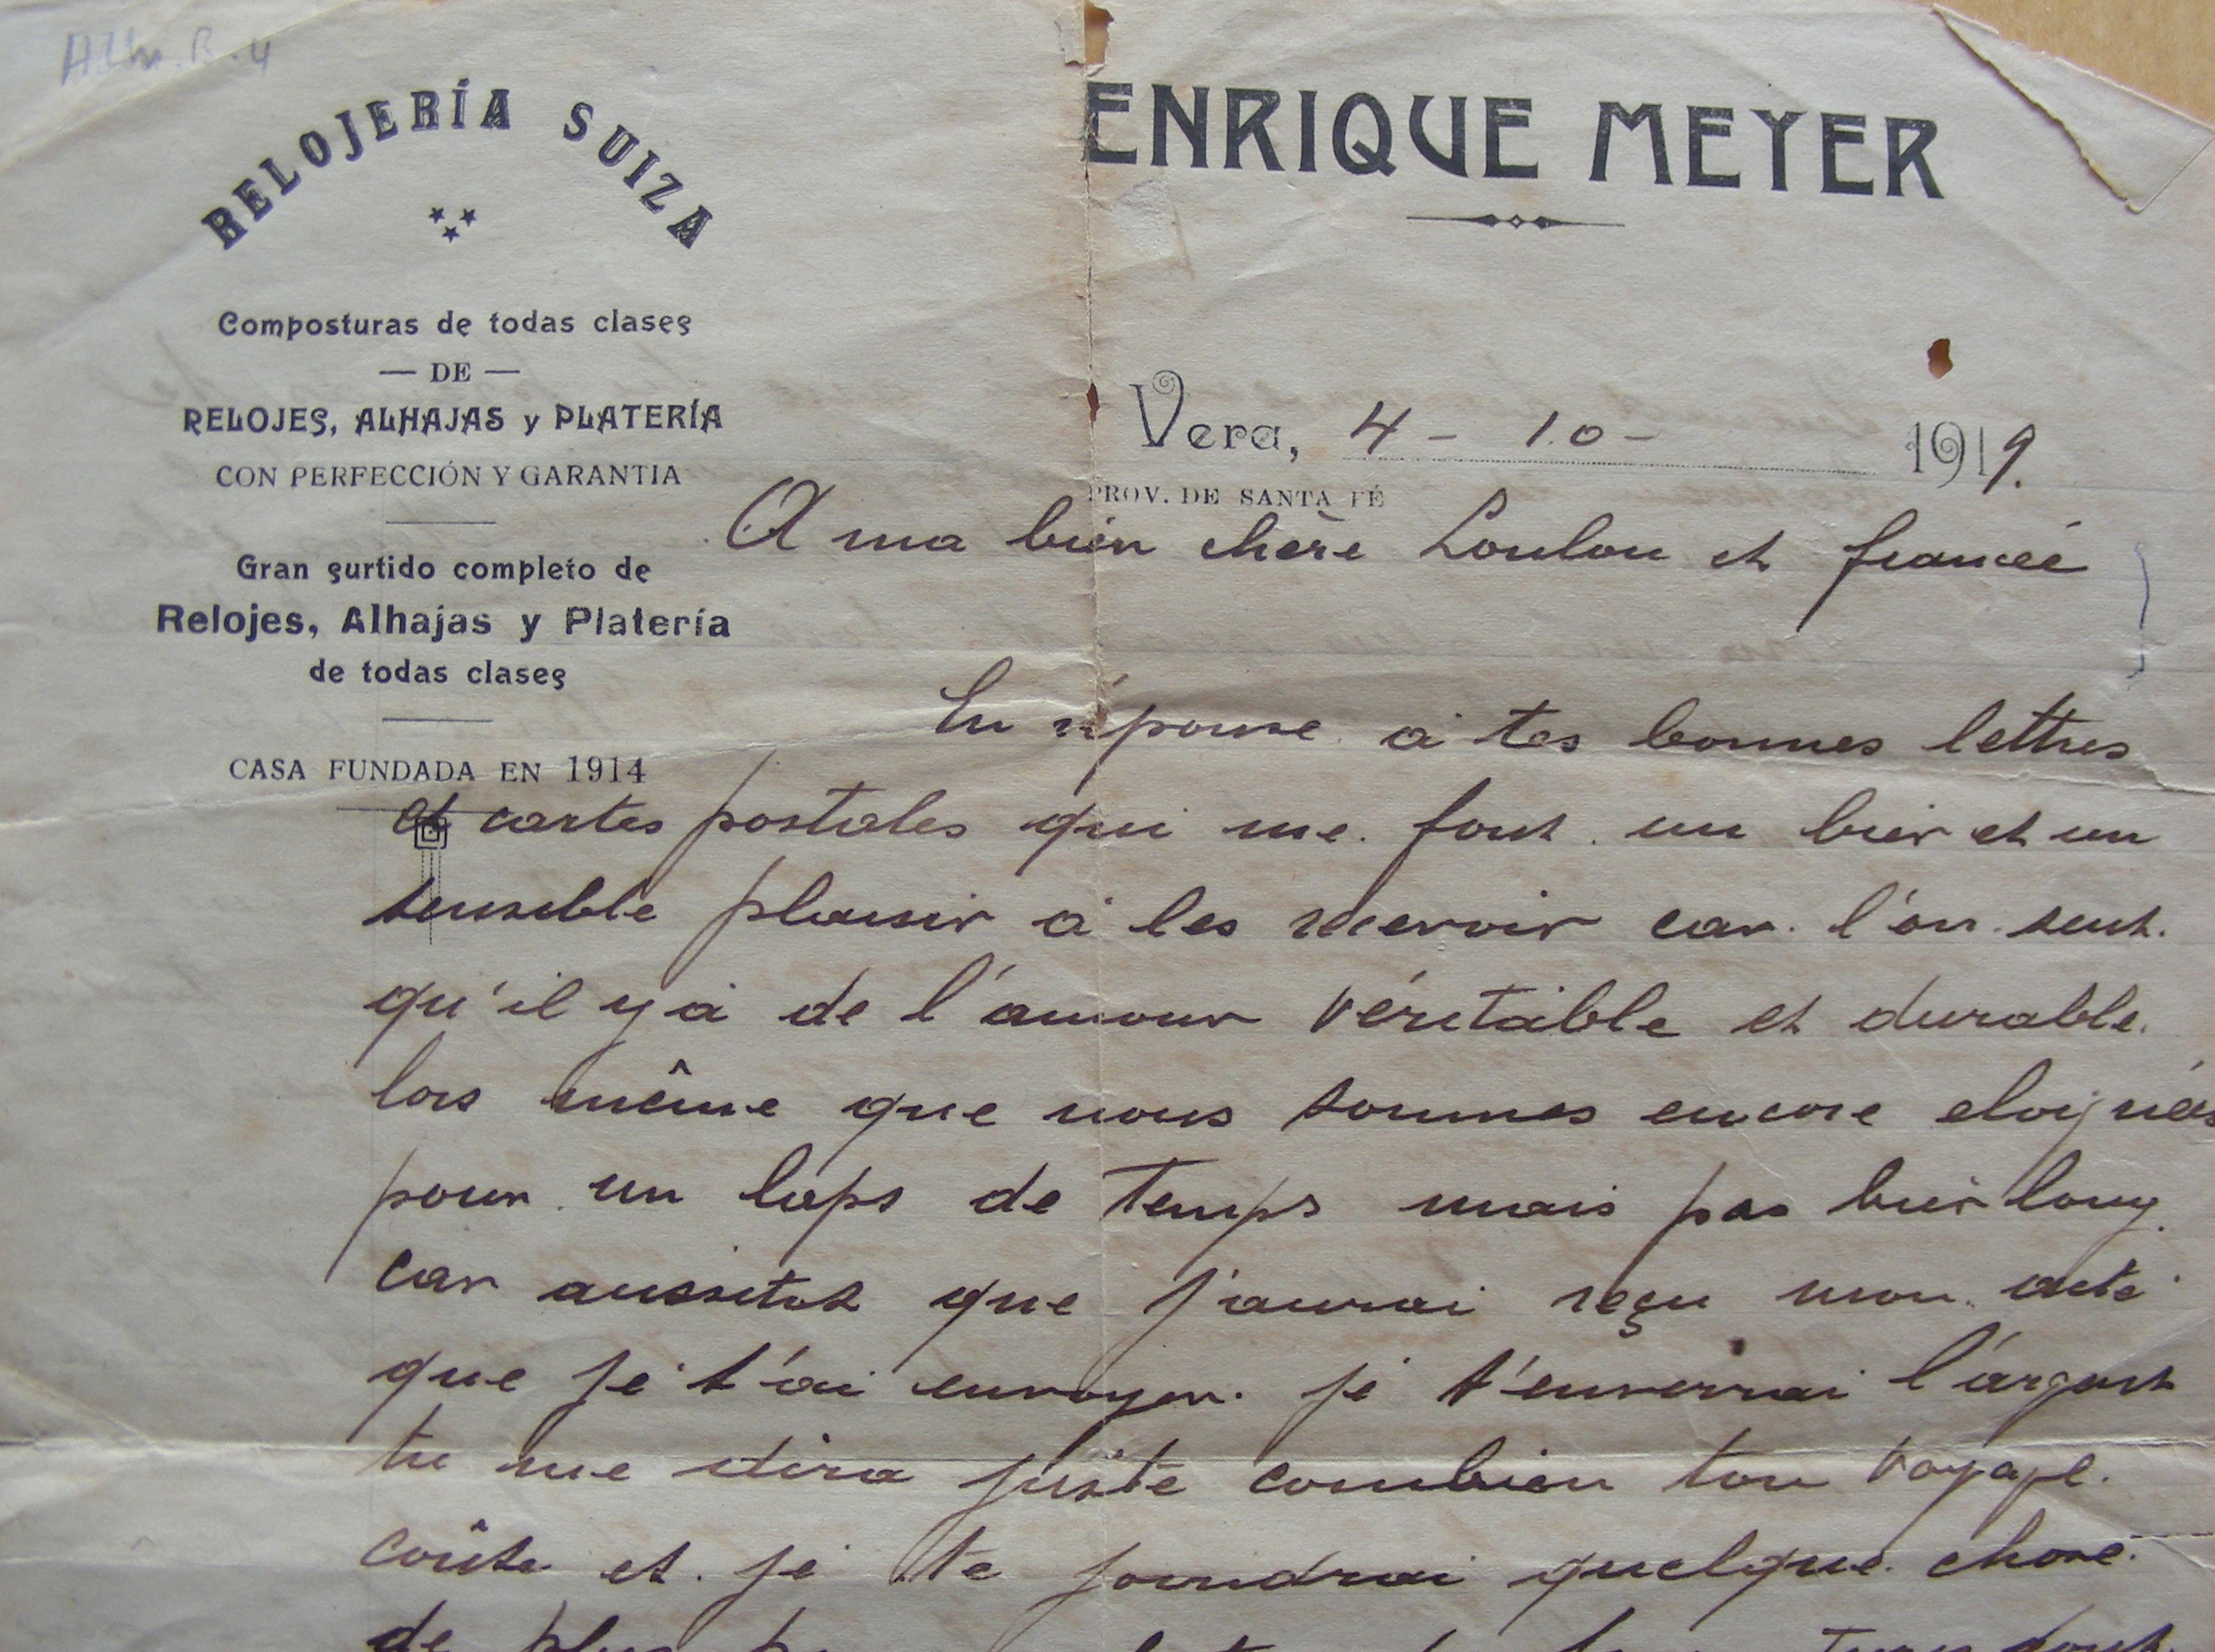 Alb. B. 4
RELOJERÍA SUIZA
Composturas de todas clases
— DE —
RELOJES, ALHAJAS y PLATERÍA
CON PERFECCIÓN Y GARANTIA
Gran surtido completo de
Relojes, Alhajas y Platería
de todas clases
CASA FUNDADA EN 1914
ENRIQUE MEYER
Vera, 4 - 10 - 1919.
PROV. DE SANTA FÉ
A ma bien chère Loulou et fiancée
En réponse à tes bonnes lettres
et cartes postales qui me font un bien et un
sensible plaisir à les recevoir car l'on sent
qu'il y à de l'amour véritable et durable.
lors même que nous sommes encore eloignés
pour un laps de temps mais pas bien long
car aussitot que j'aurai reçu mon acte
que je t'ai envoyer. je t'enverrai l'argent
tu me dira juste combien ton voyage.
coûte et je te joindrai quelque chose.
de plus